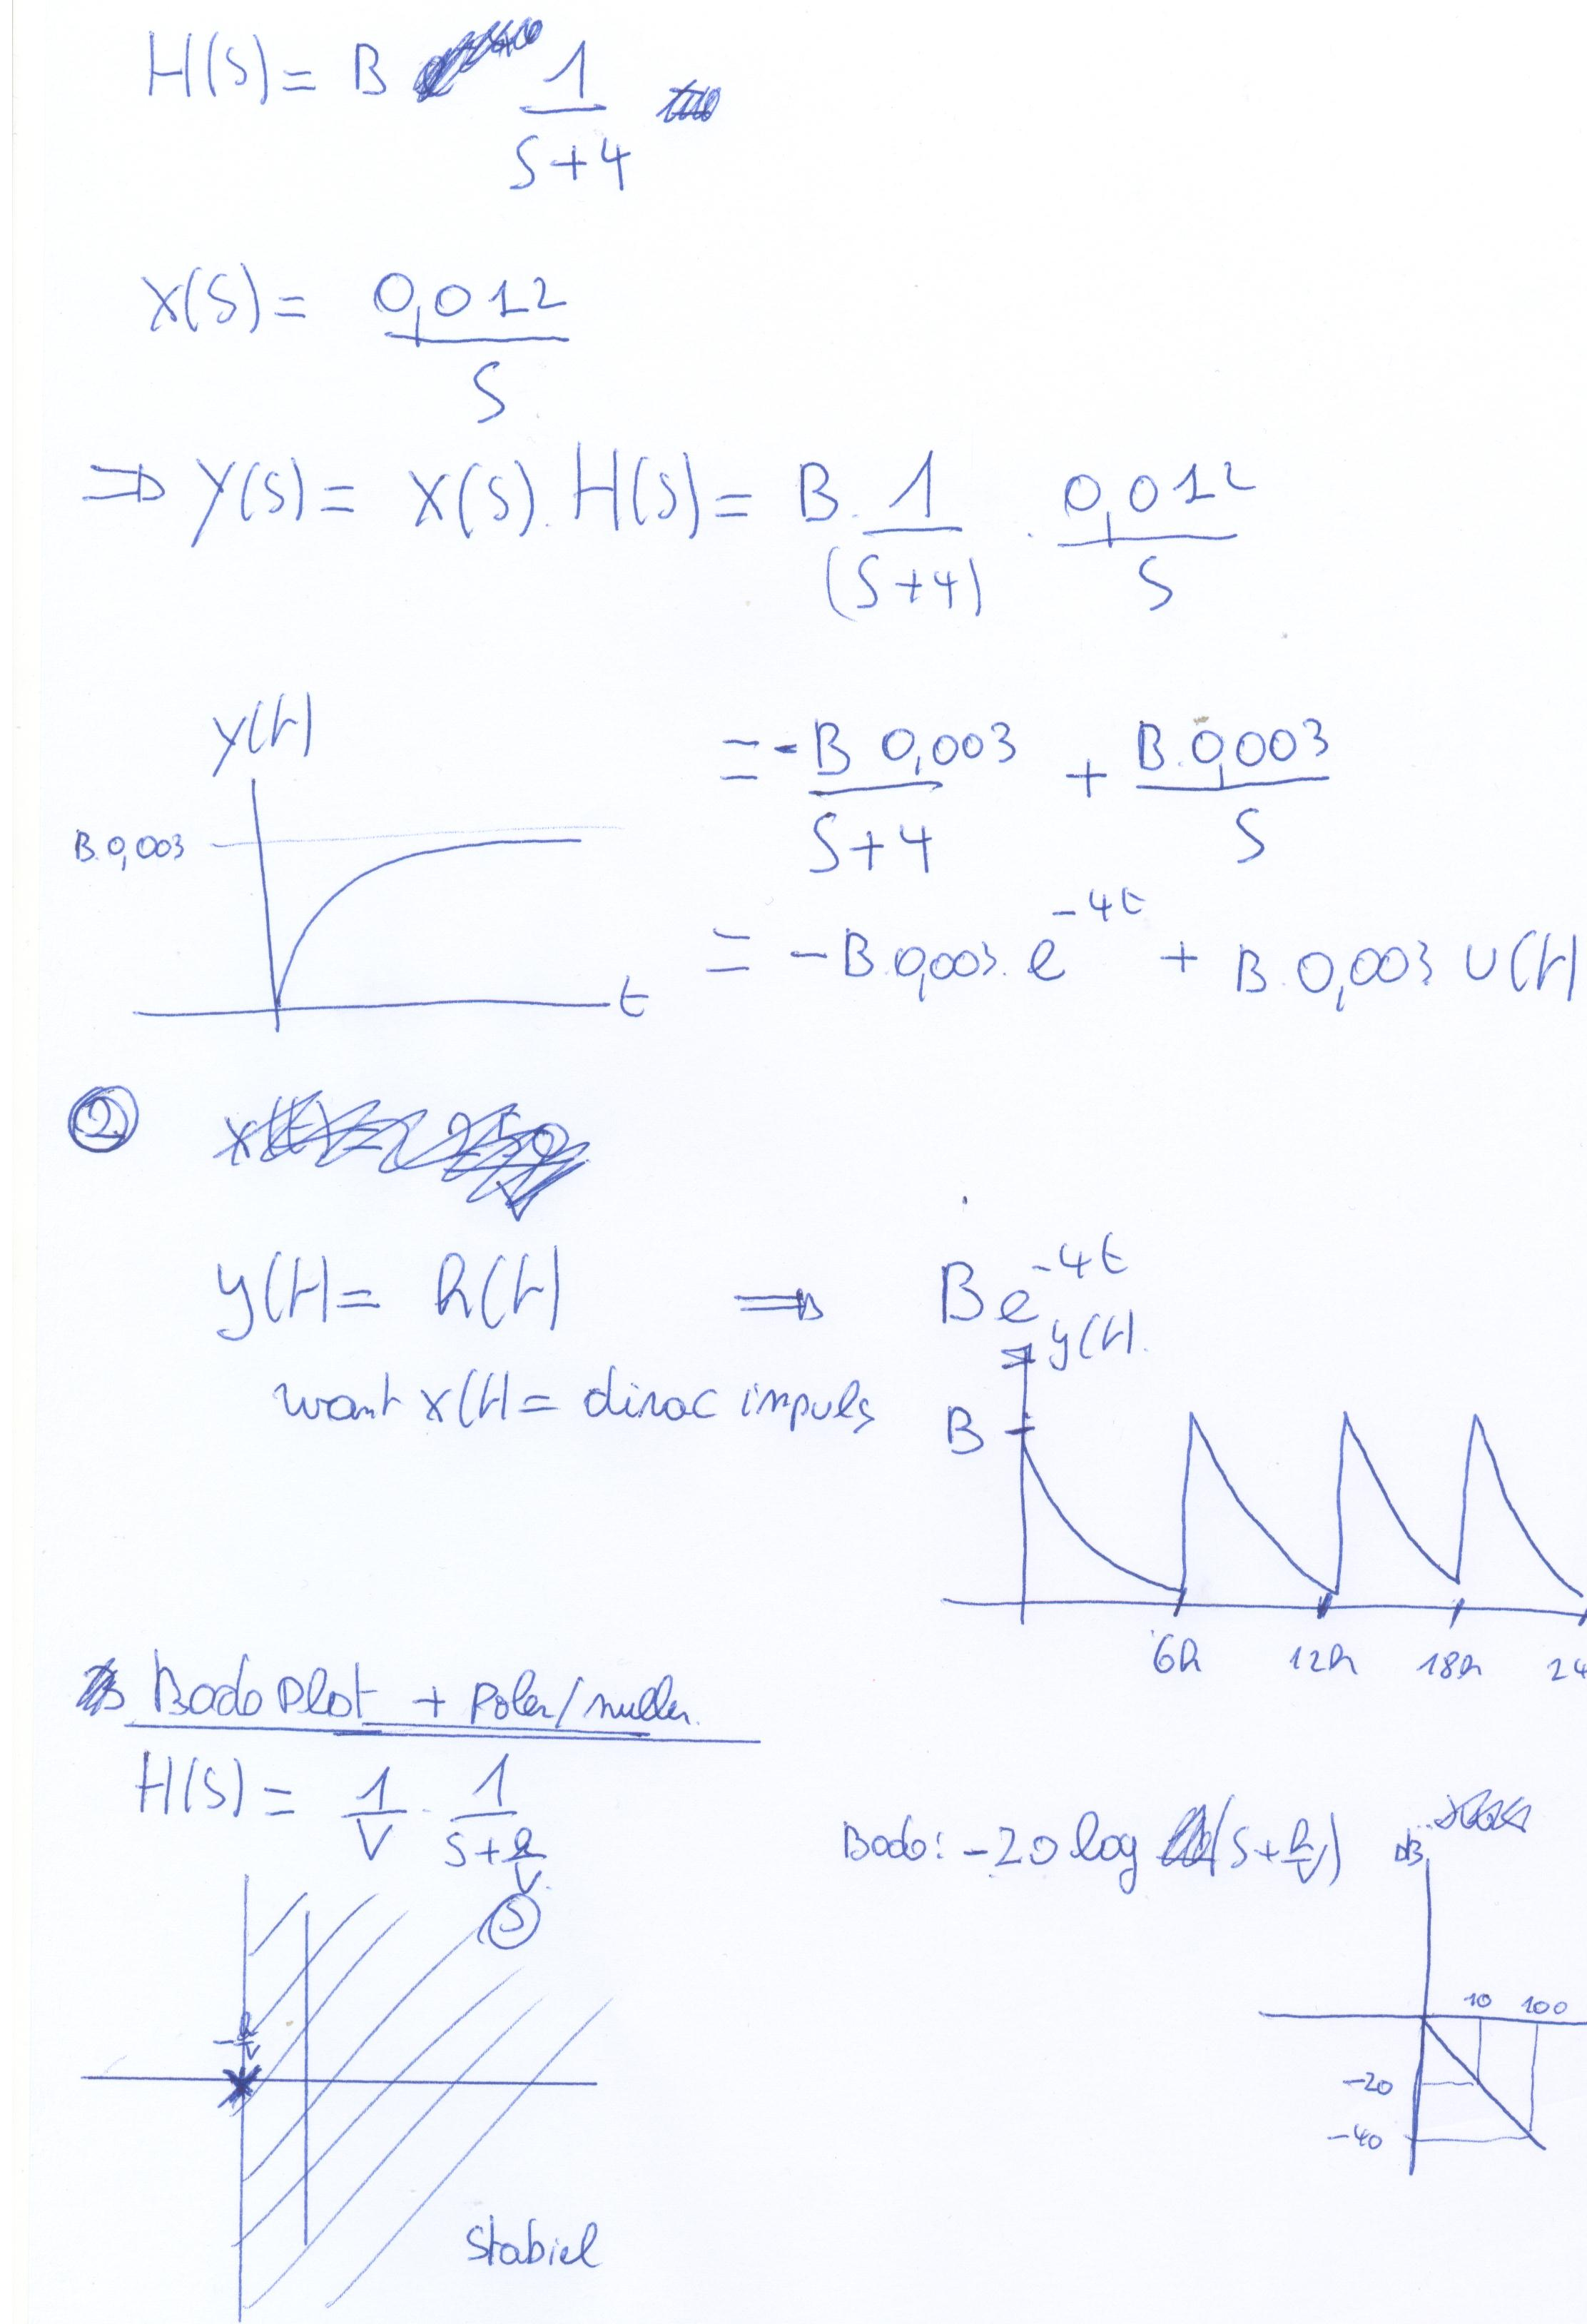 H(s) = B 1/(s+4)
X(s) = 0,012/s
⇒ Y(s) = X(s) . H(s) = B . 1/(s+4) . 0,012/s
y(t)
B.0,003
t
= - B 0,003/(s+4) + B.0,003/s
= -B.0,003. e^-4t + B.0,003 u(t)
②
y(t) = h(t) ⇒ B e^-4t
want x(t) = dirac impuls
y(t)
B
6h 12h 18h 24
Bodo Plot + Polen/nullen
H(s) = 1/V . 1/(s+k/V)
Bodo: -20 log (s+k/V)
dB
10 100
-20
-40
s
-k/V
Stabiel